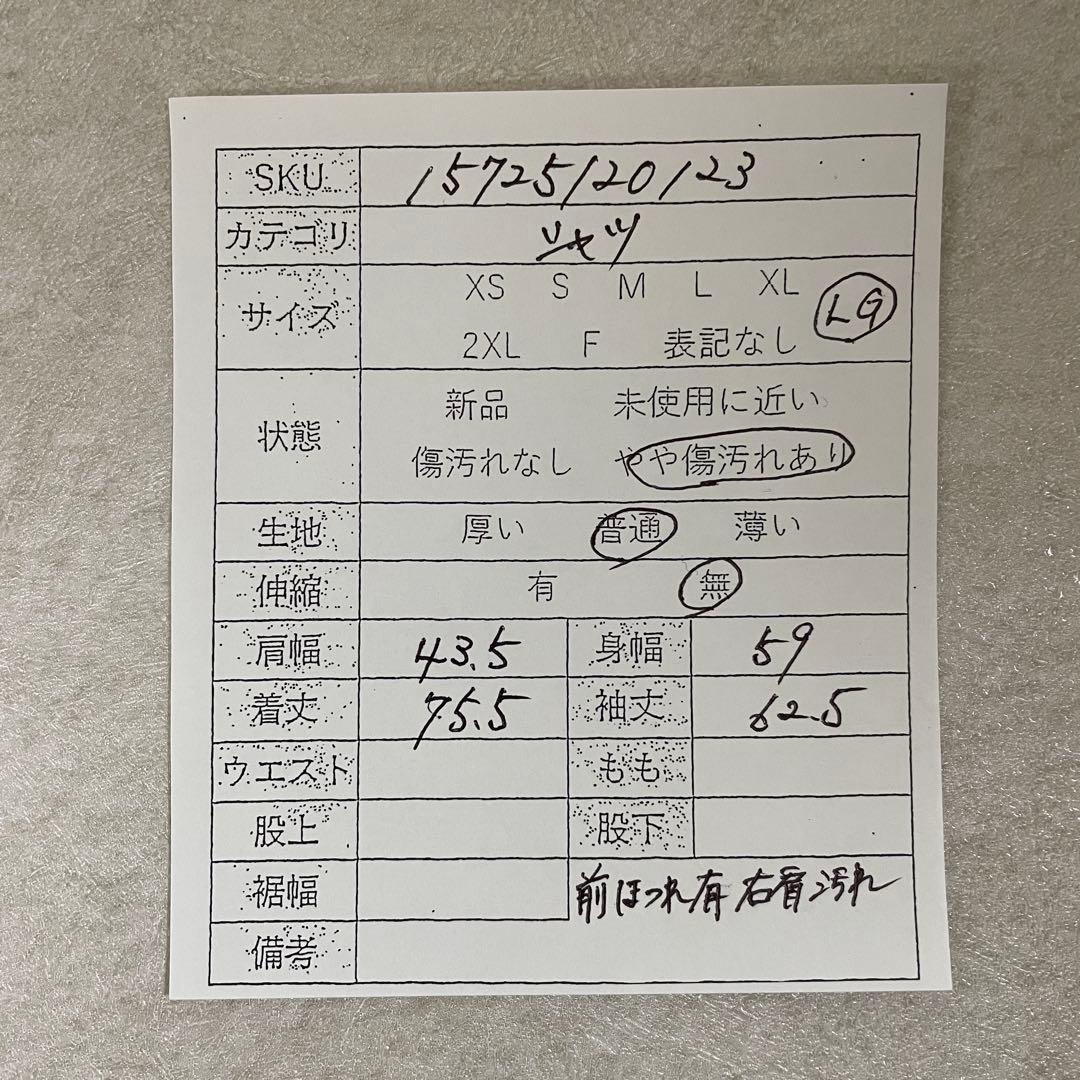 SKU 15725120123
カテゴリ シャツ
XS S M L XL LG
サイズ
2XL F 表記なし
新品 未使用に近い
状態
傷汚れなし やや傷汚れあり
生地 厚い 普通 薄い
伸縮 有 無
肩幅 43.5 身幅 59
着丈 75.5 袖丈 62.5
ウエスト もも
股上 股下
裾幅 前ほつれ有 右肩汚れ
備考